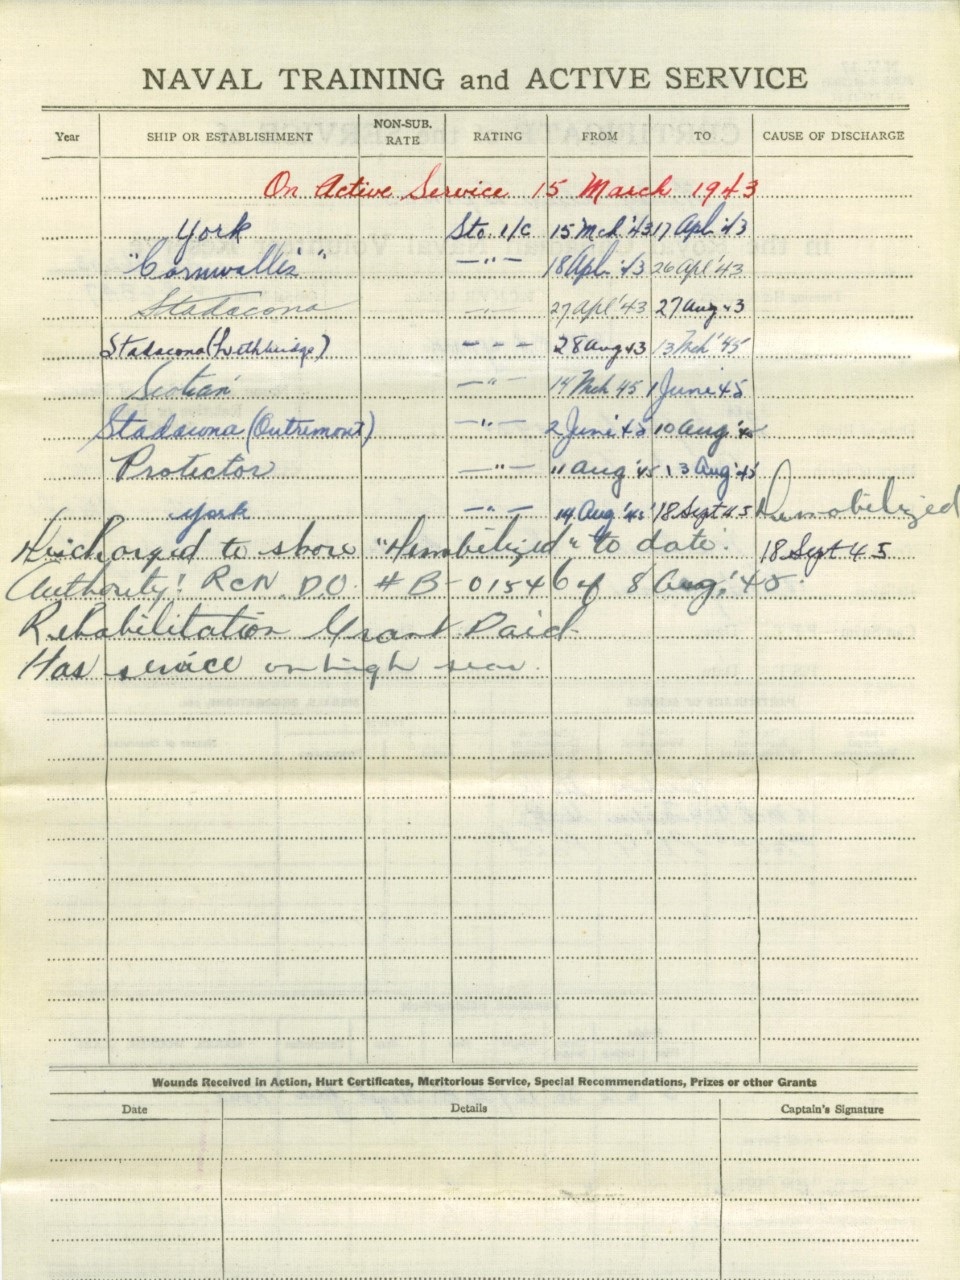 NAVAL TRAINING and ACTIVE SERVICE
Year SHIP OR ESTABLISHMENT NON-SUB. RATE RATING FROM TO CAUSE OF DISCHARGE
On Active Service 15 March 1943
York Sto. 1/C 15 Mch '43 17 Apl. '43
"Cornwallis" — " — 18 Apl. '43 26 Apl '43
Stadacona — " — 27 Apl '43 27 Aug 43
Stadacona (Lethbridge) - - - 28 Aug 43 13 Mch '45
Scotian — " — 14 Mch 45 1 June 45
Stadacona (Outremont) — " — 2 June '45 10 Aug. '45
Protector — " — 11 Aug '45 13 Aug '45
York — " — 14 Aug '45 18 Sept 45 Demobilized
Discharged to shore "Demobilized" to date. 18 Sept 45
Authority: RCN. D.O. # B-01546 of 8 Aug. '45.
Rehabilitation Grant Paid
Has service on high seas.
Wounds Received in Action, Hurt Certificates, Meritorious Service, Special Recommendations, Prizes or other Grants
Date Details Captain's Signature